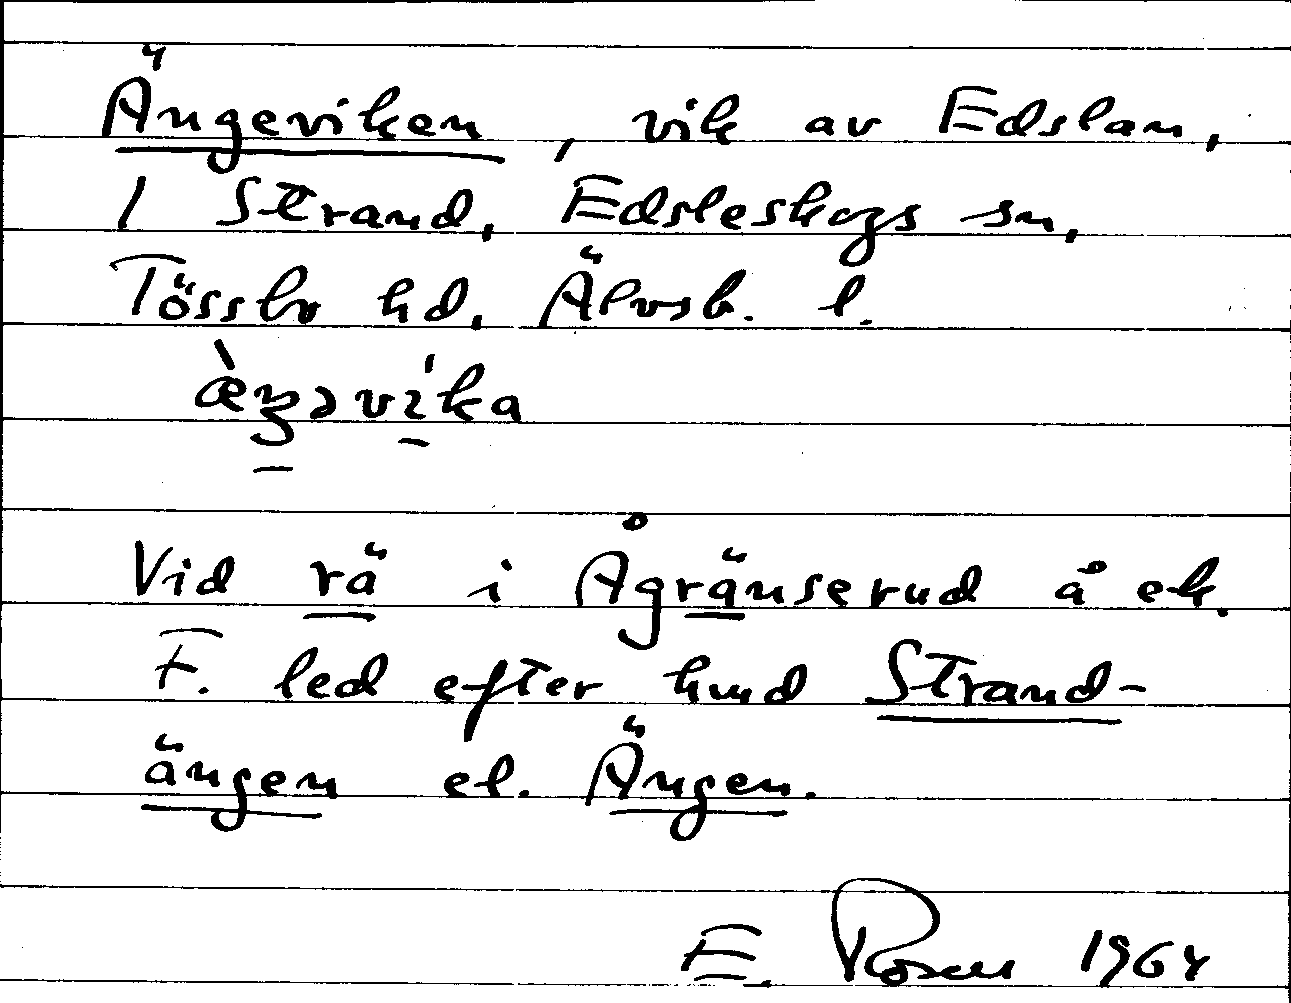 Ängeviken, vik av Edslan,
1 Strand, Edsleskogs sn,
Tössbo hd, Älvsb. l.
æ̀ŋəvi'ka
Vid rä i Ågränserud å ek.
F. led efter hmd Strand-
ängen el. Ängen.
E. Rosen 1964